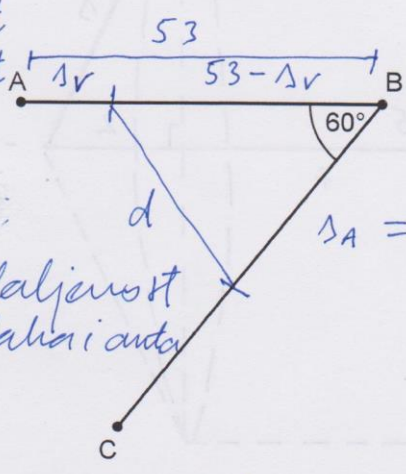 53
A s_v 53 - s_v B
60°
d
s_A =
aljenost
i auta
C